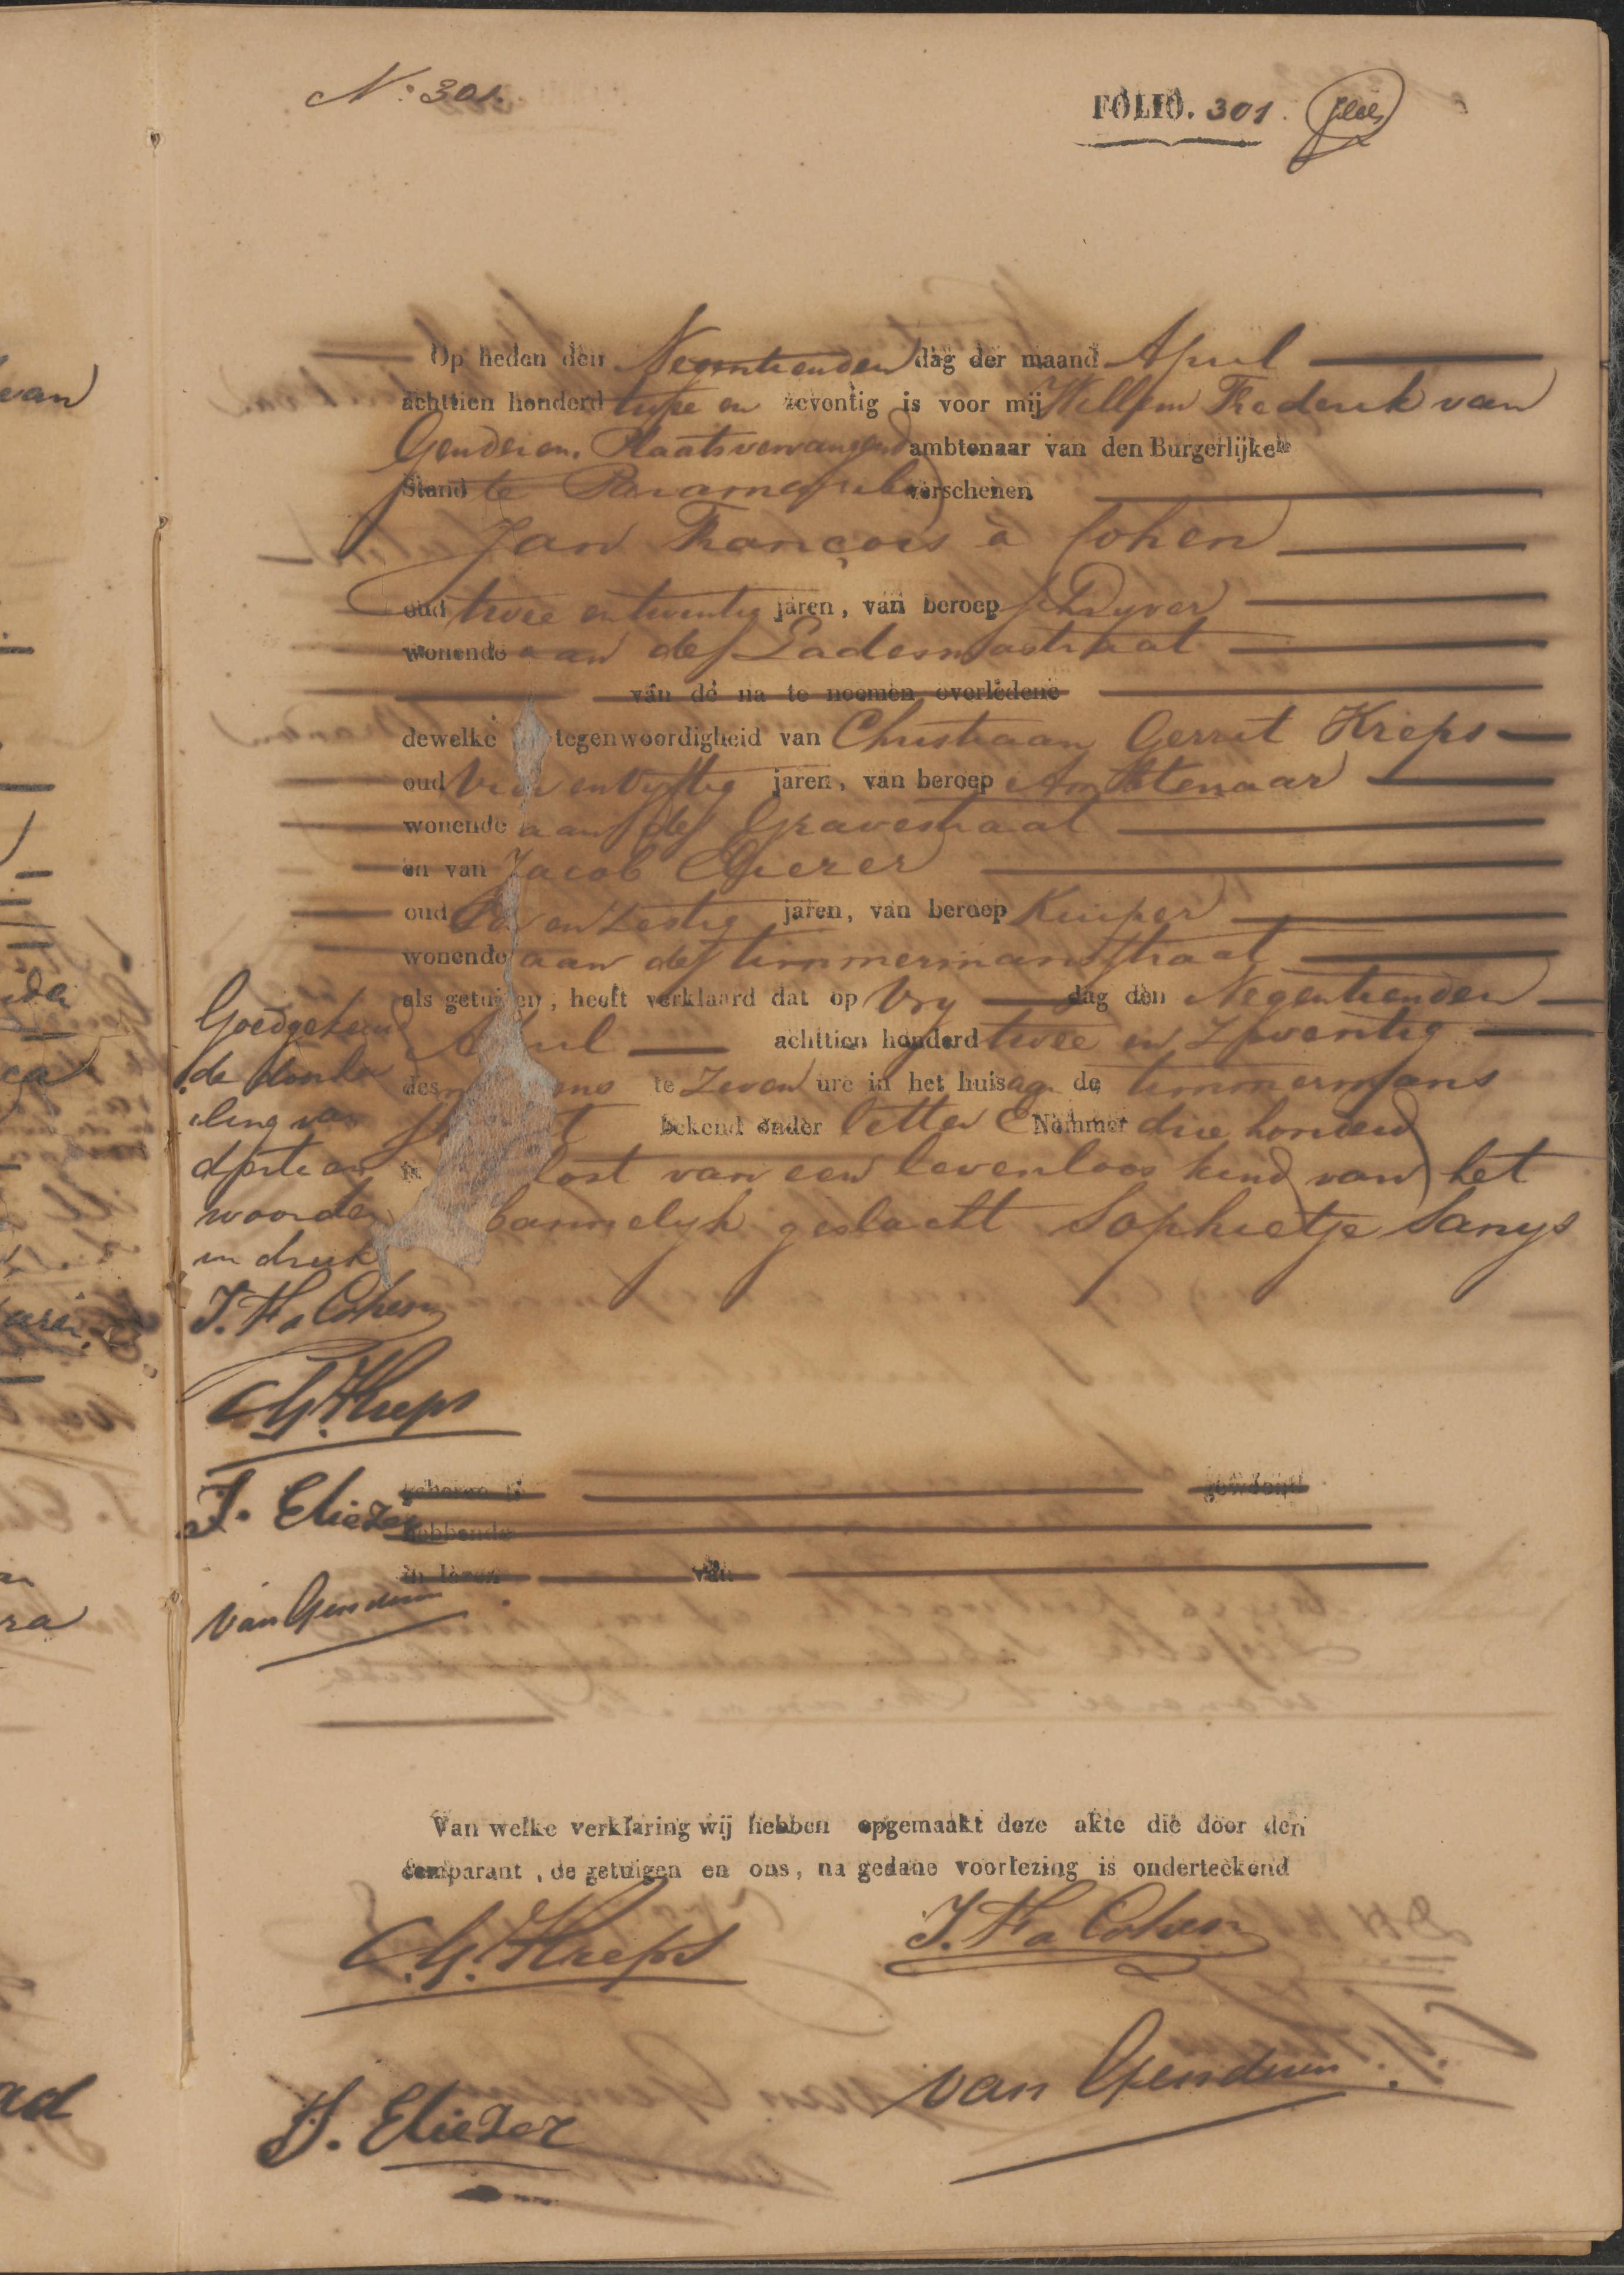 No. 301.
FOLIO. 301.
Op heden den Negentienden dag der maand April
achttien honderd twee en zeventig is voor mij Willem Frederik van
Genderen, Plaatsvervangend ambtenaar van den Burgerlijken
Stand te Paramaribo verschenen
Jan François à Cohen
oud twee en twintig jaren, van beroep Schryver
wonende aan de Ladesmastraat
van de na te noemen overledene
dewelke tegenwoordigheid van Christiaan Gerrit Kreps
oud en vyftig jaren, van beroep Ambtenaar
wonende aan de Gravestraat
en van Jacob Eliezer
oud en zestig jaren, van beroep Kuiper
wonende aan de timmermanstraat
als getuigen, heeft verklaard dat op Vry dag den Negentienden
April achttien honderd twee en Zeventig
des te Zeven ure in het huis aan de timmermans
bekend onder letter E Nommer drie honderd
lost van een levenloos kind van het
geslacht Sophietje Sanys
Goedgekeurd
de doorha
ling van
woorden
in druk
J. F. a Cohen
C. G. Kreps
J. Eliezer
van Genderen
geboren te genaamd
hebbende
in leven van
Van welke verklaring wij hebben opgemaakt deze akte die door den
comparant, de getuigen en ons, na gedane voorlezing is onderteekend
C. G. Kreps J. F. a Cohen
J. Eliezer van Genderen